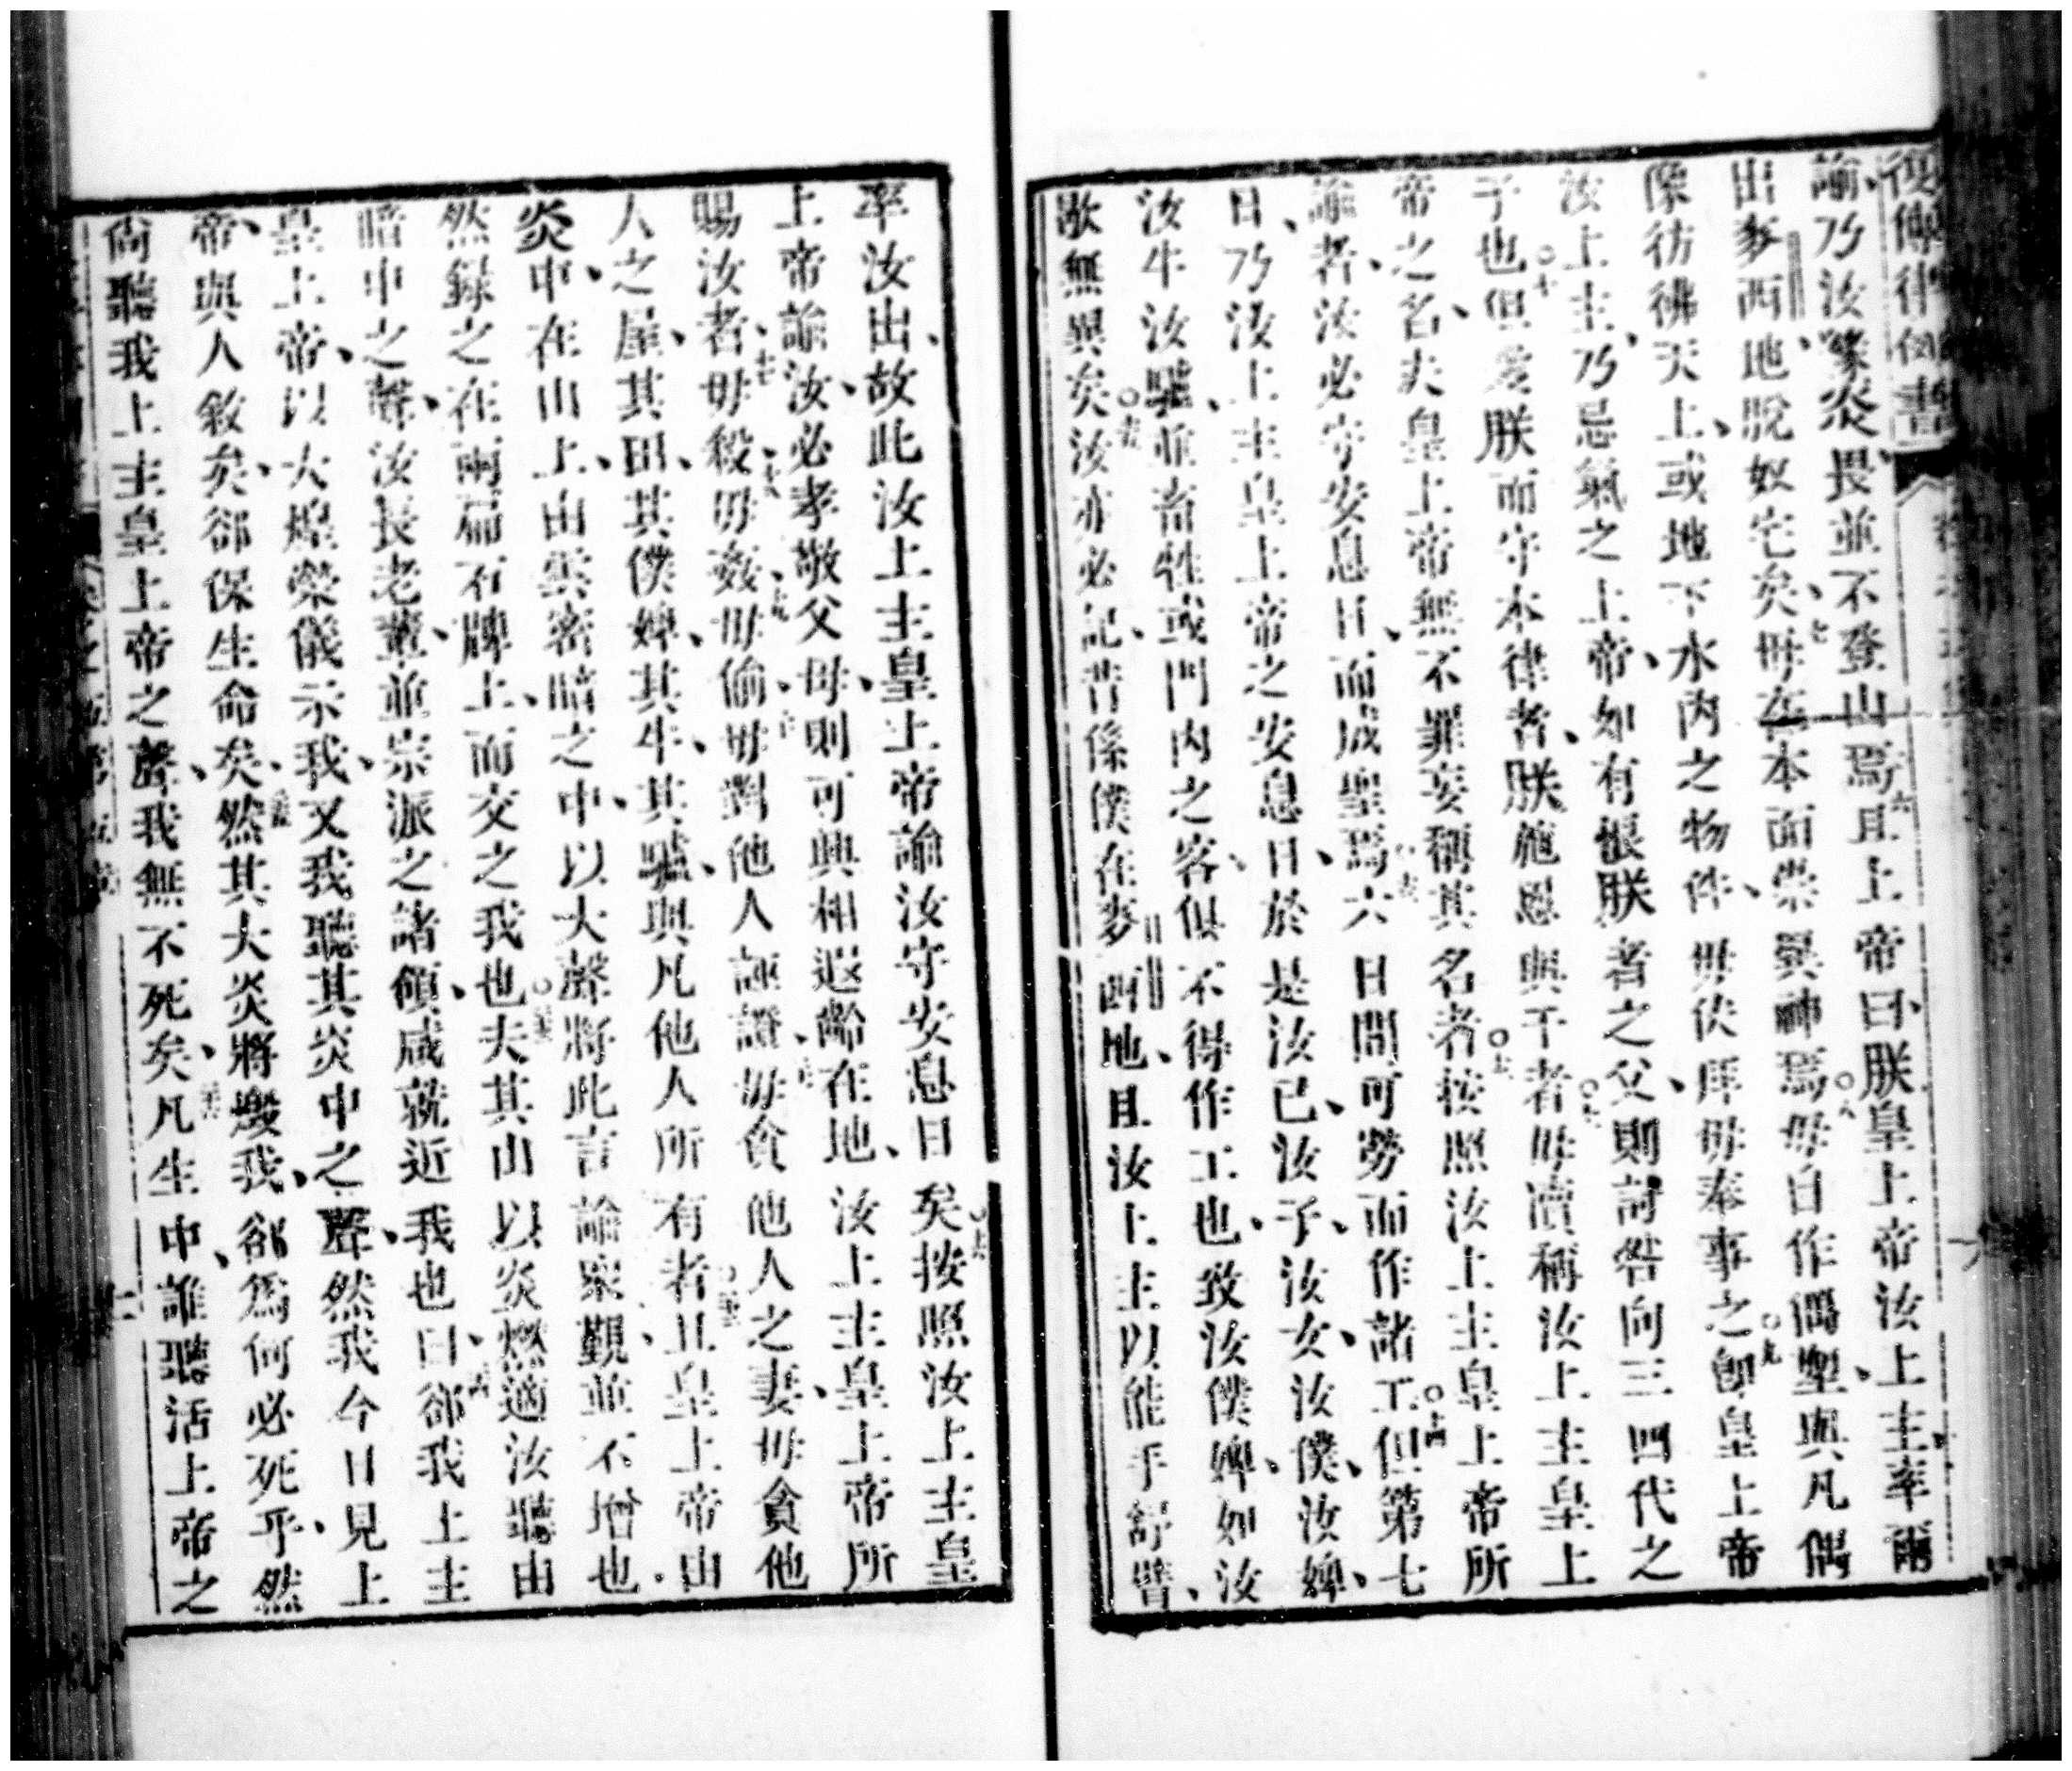 復傳律例書
諭乃汝等炎畏並不登山焉六且上帝曰朕皇上帝汝上主率爾
出麥西地脫奴宅矣七毋在本面崇異神焉八毋自作偶塑與凡偶
像彷彿天上或地下水內之物件毋伏拜毋奉事之九卽皇上帝
汝上主乃忌氣之上帝如有恨朕者之父則討咎向三四代之
子也十但愛朕而守本律者朕施恩與千者毋瀆稱汝上主皇上
帝之名夫皇上帝無不罪妄稱其名者按照汝上主皇上帝所
諭者汝必守安息日而成聖焉六日間可勞而作諸工但第七
日乃汝上主皇上帝之安息日於是汝已汝子汝女汝僕汝婢
汝牛汝驢並畜牲或門內之客俱不得作工也致汝僕婢如汝
歇無異矣汝亦必記昔係僕在麥西地且汝上主以能手舒臂
率汝出故此汝上主皇上帝諭汝守安息日矣按照汝上主皇
上帝諭汝必孝敬父母則可興相遐齡在地汝上主皇上帝所
賜汝者十七毋殺十八毋姦十九毋偷二十毋對他人誣證毋貪他人之妻毋貪他
人之屋其田其僕婢其牛其驢與凡他人所有者且皇上帝由
炎中在山上由雲密暗之中以大聲將此言諭衆覲並不增也
然錄之在兩扁石牌上而交之我也夫其山以炎燃適汝聽由
暗中之聲汝長老輩並宗派之諸領咸就近我也曰卻我上主
皇上帝以大煌榮儀示我又我聽其炎中之聲然我今日見上
帝與人敘矣卻保生命矣然其大炎將燬我卻爲何必死乎然
尙聽我上主皇上帝之聲我無不死矣凡生中誰聽活上帝之